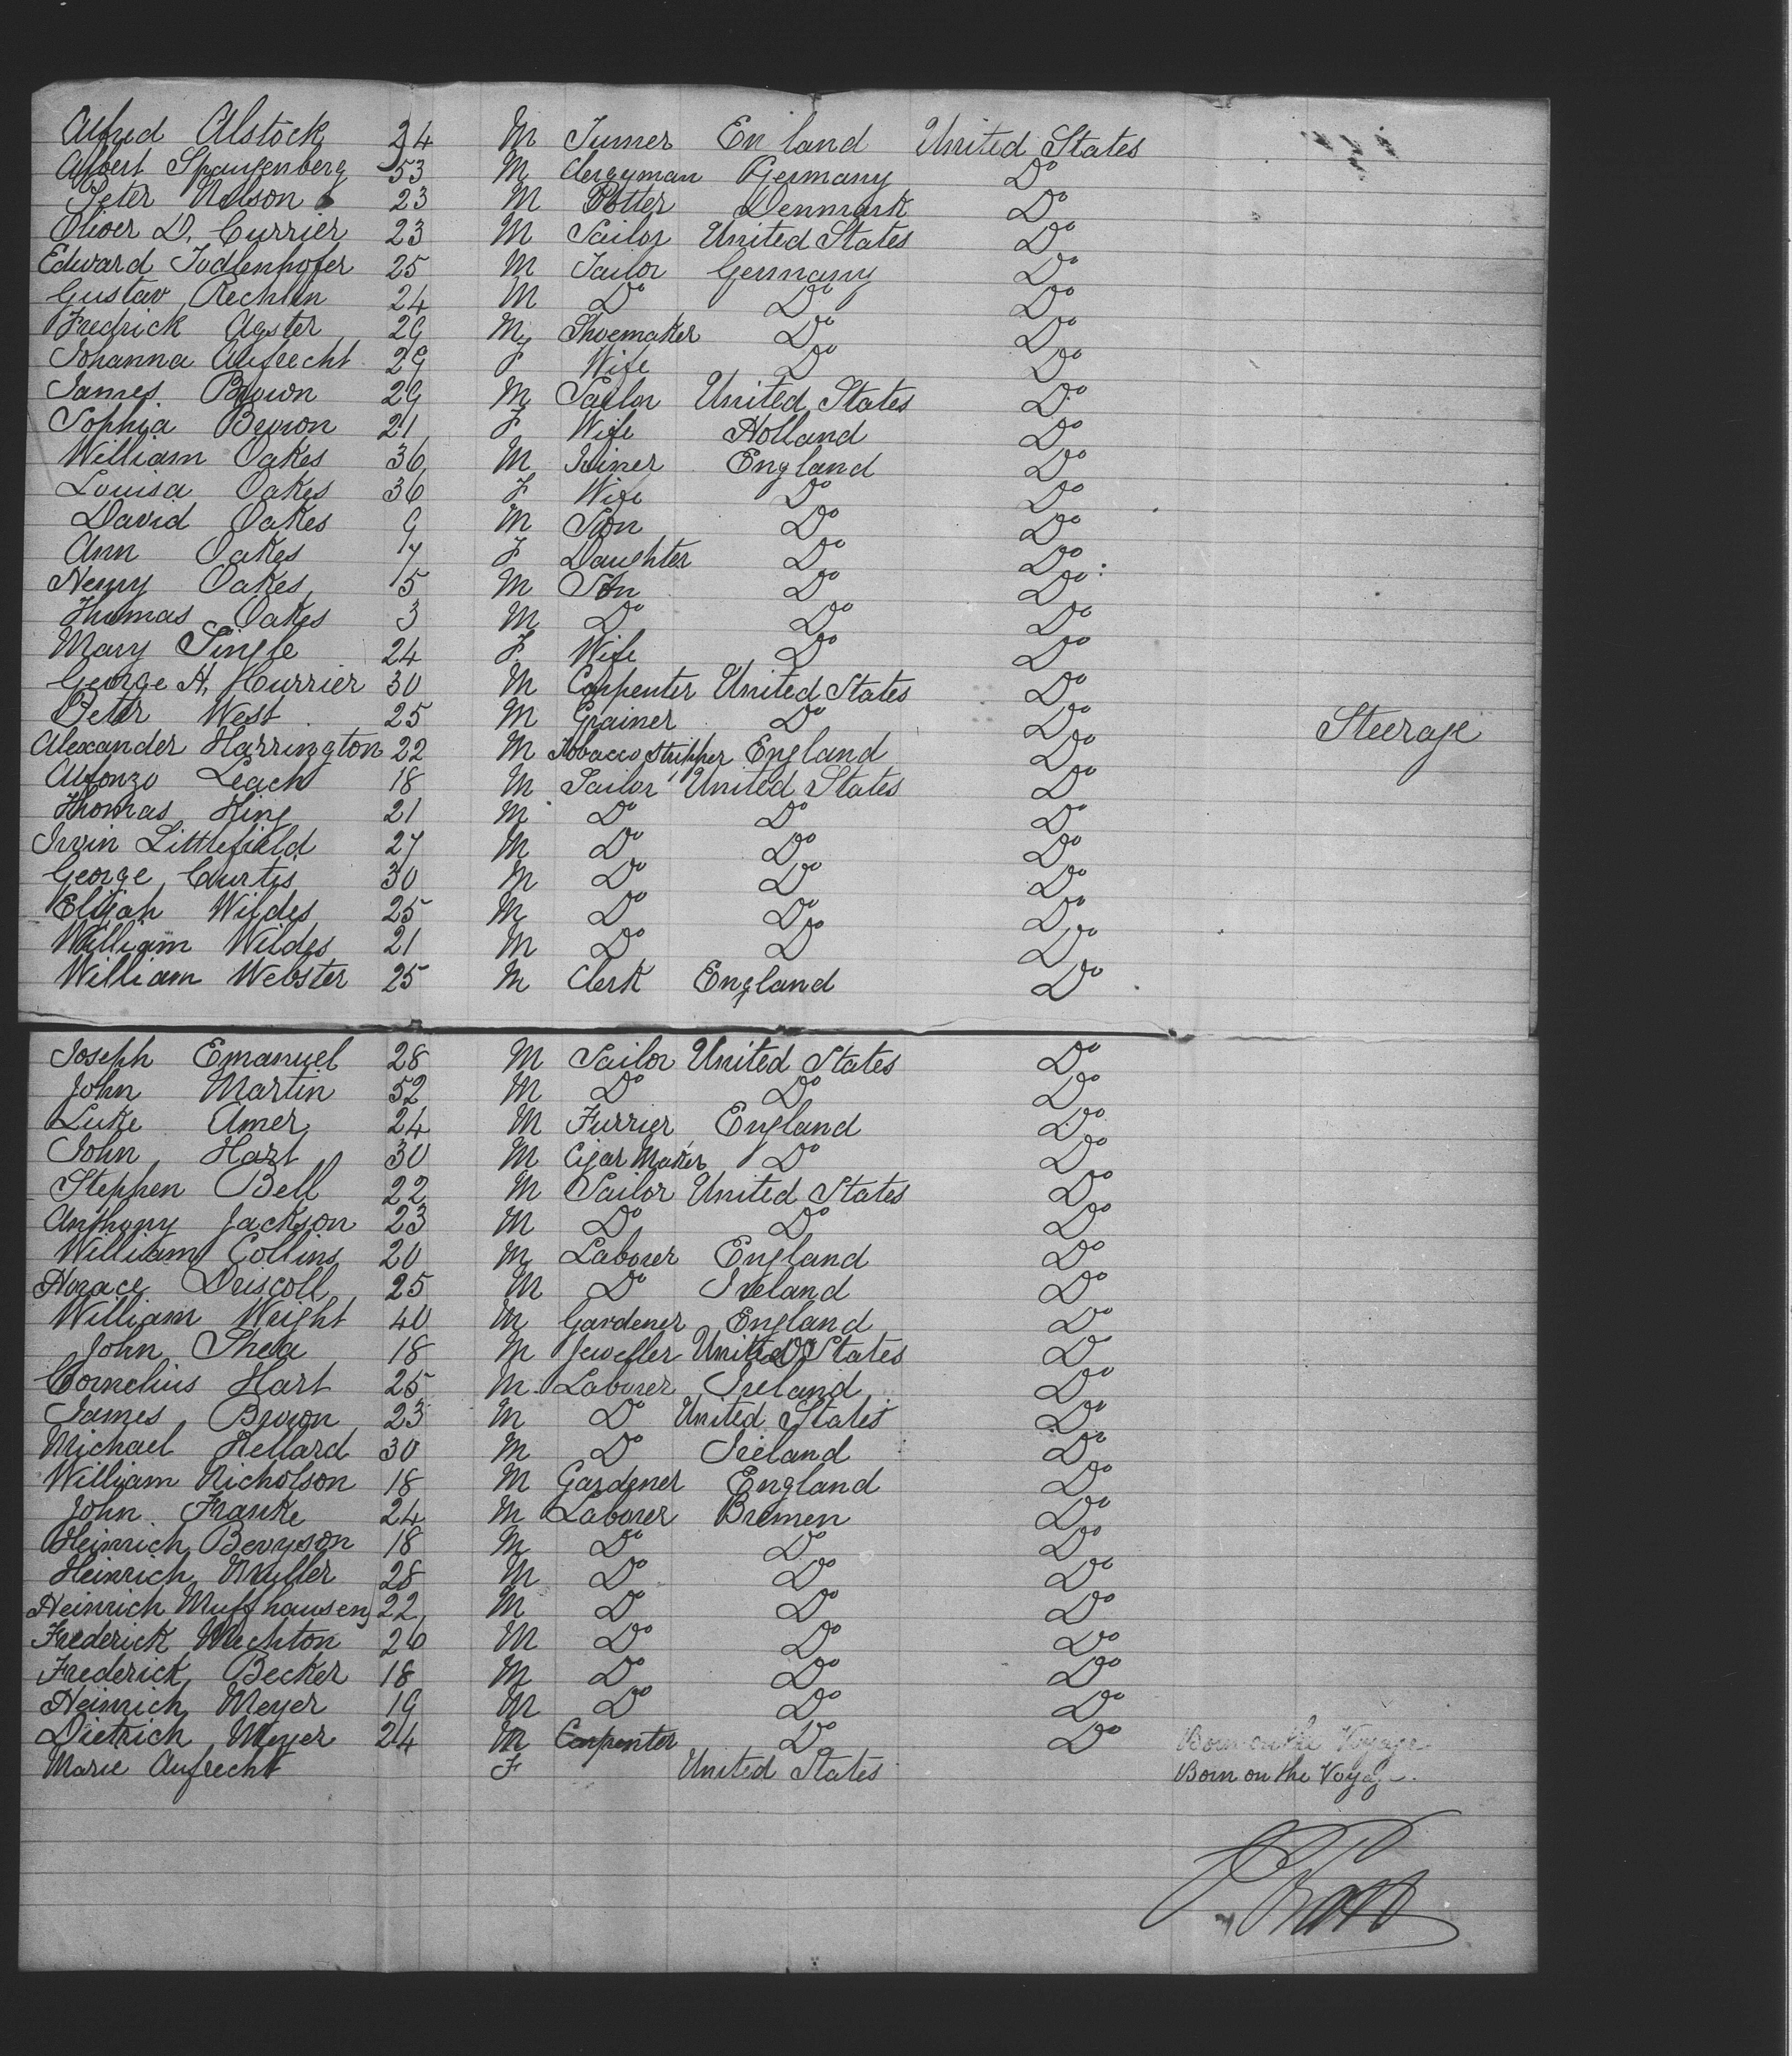 Alfred Alstock 24 M Turner England United States
Albert Spangenberg 53 M Clergyman Germany Do
Peter Nelson 23 M Potter Denmark Do
Oliver D. Currier 23 M Sailor United States Do
Edward Todlenhofer 25 M Tailor Germany Do
Gustav Rechlin 24 M Do Do Do
Fredrick Agster 29 M Shoemaker Do Do
Johanna Aufrecht 29 F Wife Do Do
James Brown 29 M Sailor United States Do
Sophia Brown 21 F Wife Holland Do
William Oakes 36 M England Do
Louisa Oakes 36 F Wife Do Do
David Oakes 9 M Son Do Do
Ann Oakes 7 F Daughter Do Do
Henry Oakes 5 M Son Do Do
Thomas Oakes 3 M Do Do Do
Mary Single 24 F Wife Do Do
George H. Currier 30 M Carpenter United States Do
Peter West 25 M Grainer Do Do Steerage
Alexander Harrington 22 M Tobacco Stripper England Do
Alfonzo Leach 18 M Sailor United States Do
Thomas King 21 M Do Do Do
Irvin Littlefield 27 M Do Do Do
George Curtis 30 M Do Do Do
Elijah Wildes 25 M Do Do Do
William Wildes 21 M Do Do Do
William Webster 25 M Clerk England Do
Joseph Emanuel 28 M Sailor United States Do
John Martin 52 M Do Do Do
Luke Amer 24 M Furrier England Do
John Hart 30 M Cigar Maker Do Do
Stephen Bell 22 M Sailor United States Do
Anthony Jackson 23 M Do Do Do
William Collins 20 M Laborer England Do
Horace Driscoll 25 M Do Ireland Do
William Wright 40 M Gardener England Do
John Shea 18 M Jeweller United States Do
Cornelius Hart 25 M Laborer Ireland Do
James Brown 23 M Do United States Do
Michael Hellard 30 M Do Ireland Do
William Nicholson 18 M Gardener England Do
John Franke 24 M Laborer Bremen Do
Heinrich Bevyson 18 M Do Do Do
Heinrich Muller 28 M Do Do Do
Heinrich Muffhausen 22 M Do Do Do
Frederick Wichton 26 M Do Do Do
Frederick Becker 18 M Do Do Do
Heinrich Meyer 19 M Do Do Do
Dietrich Meyer 24 M Carpenter Do Do Born on the Voyage
Marie Aufrecht F United States Born on the Voyage.